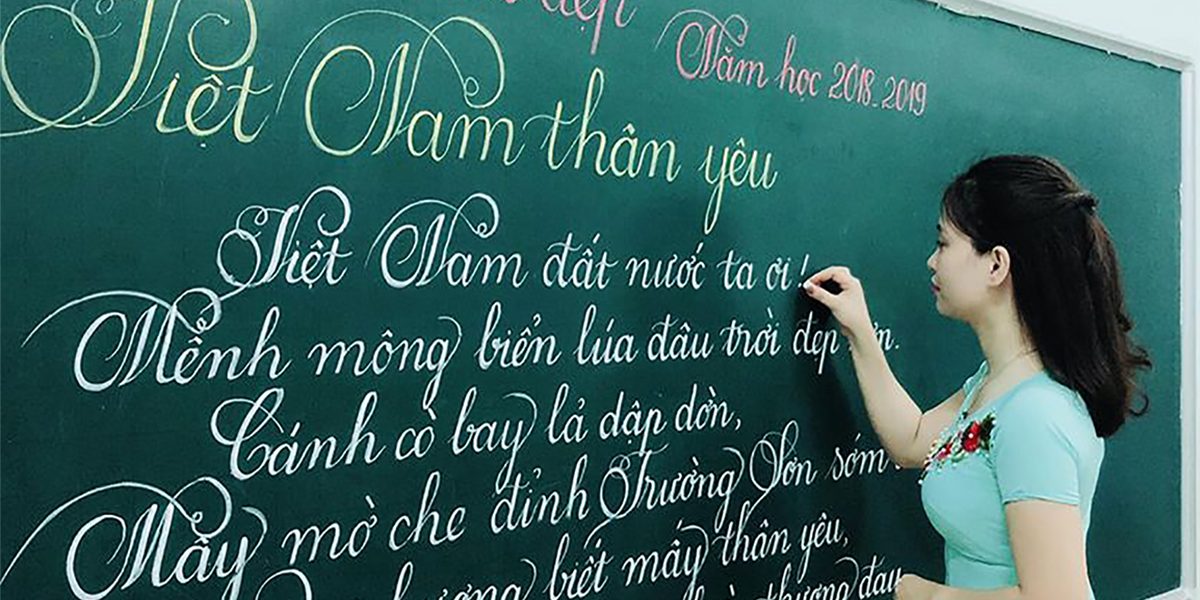 đẹp
Năm học 2018-2019
Việt Nam thân yêu
Việt Nam đất nước ta ơi!
Mênh mông biển lúa đâu trời đẹp hơn.
Cánh cò bay lả dập dờn,
Mây mờ che đỉnh Trường Sơn sớm
biết mấy thân yêu,
thương đau